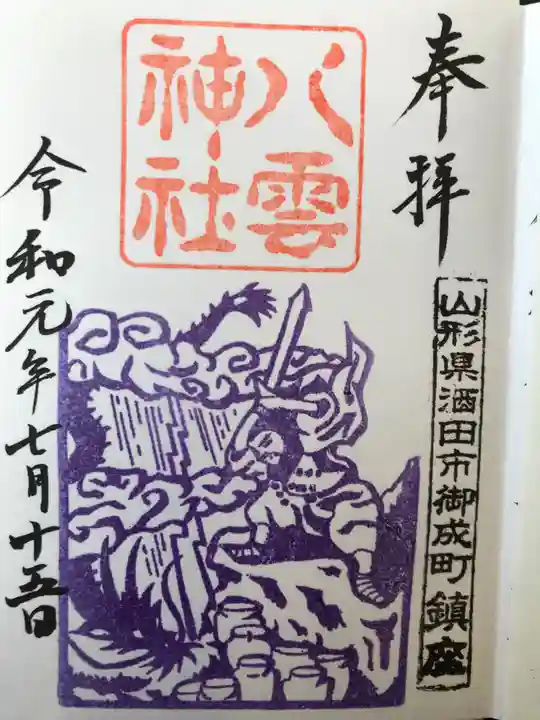 奉拝
山形県酒田市御成町鎮座
八雲
神社
令和元年七月十五日